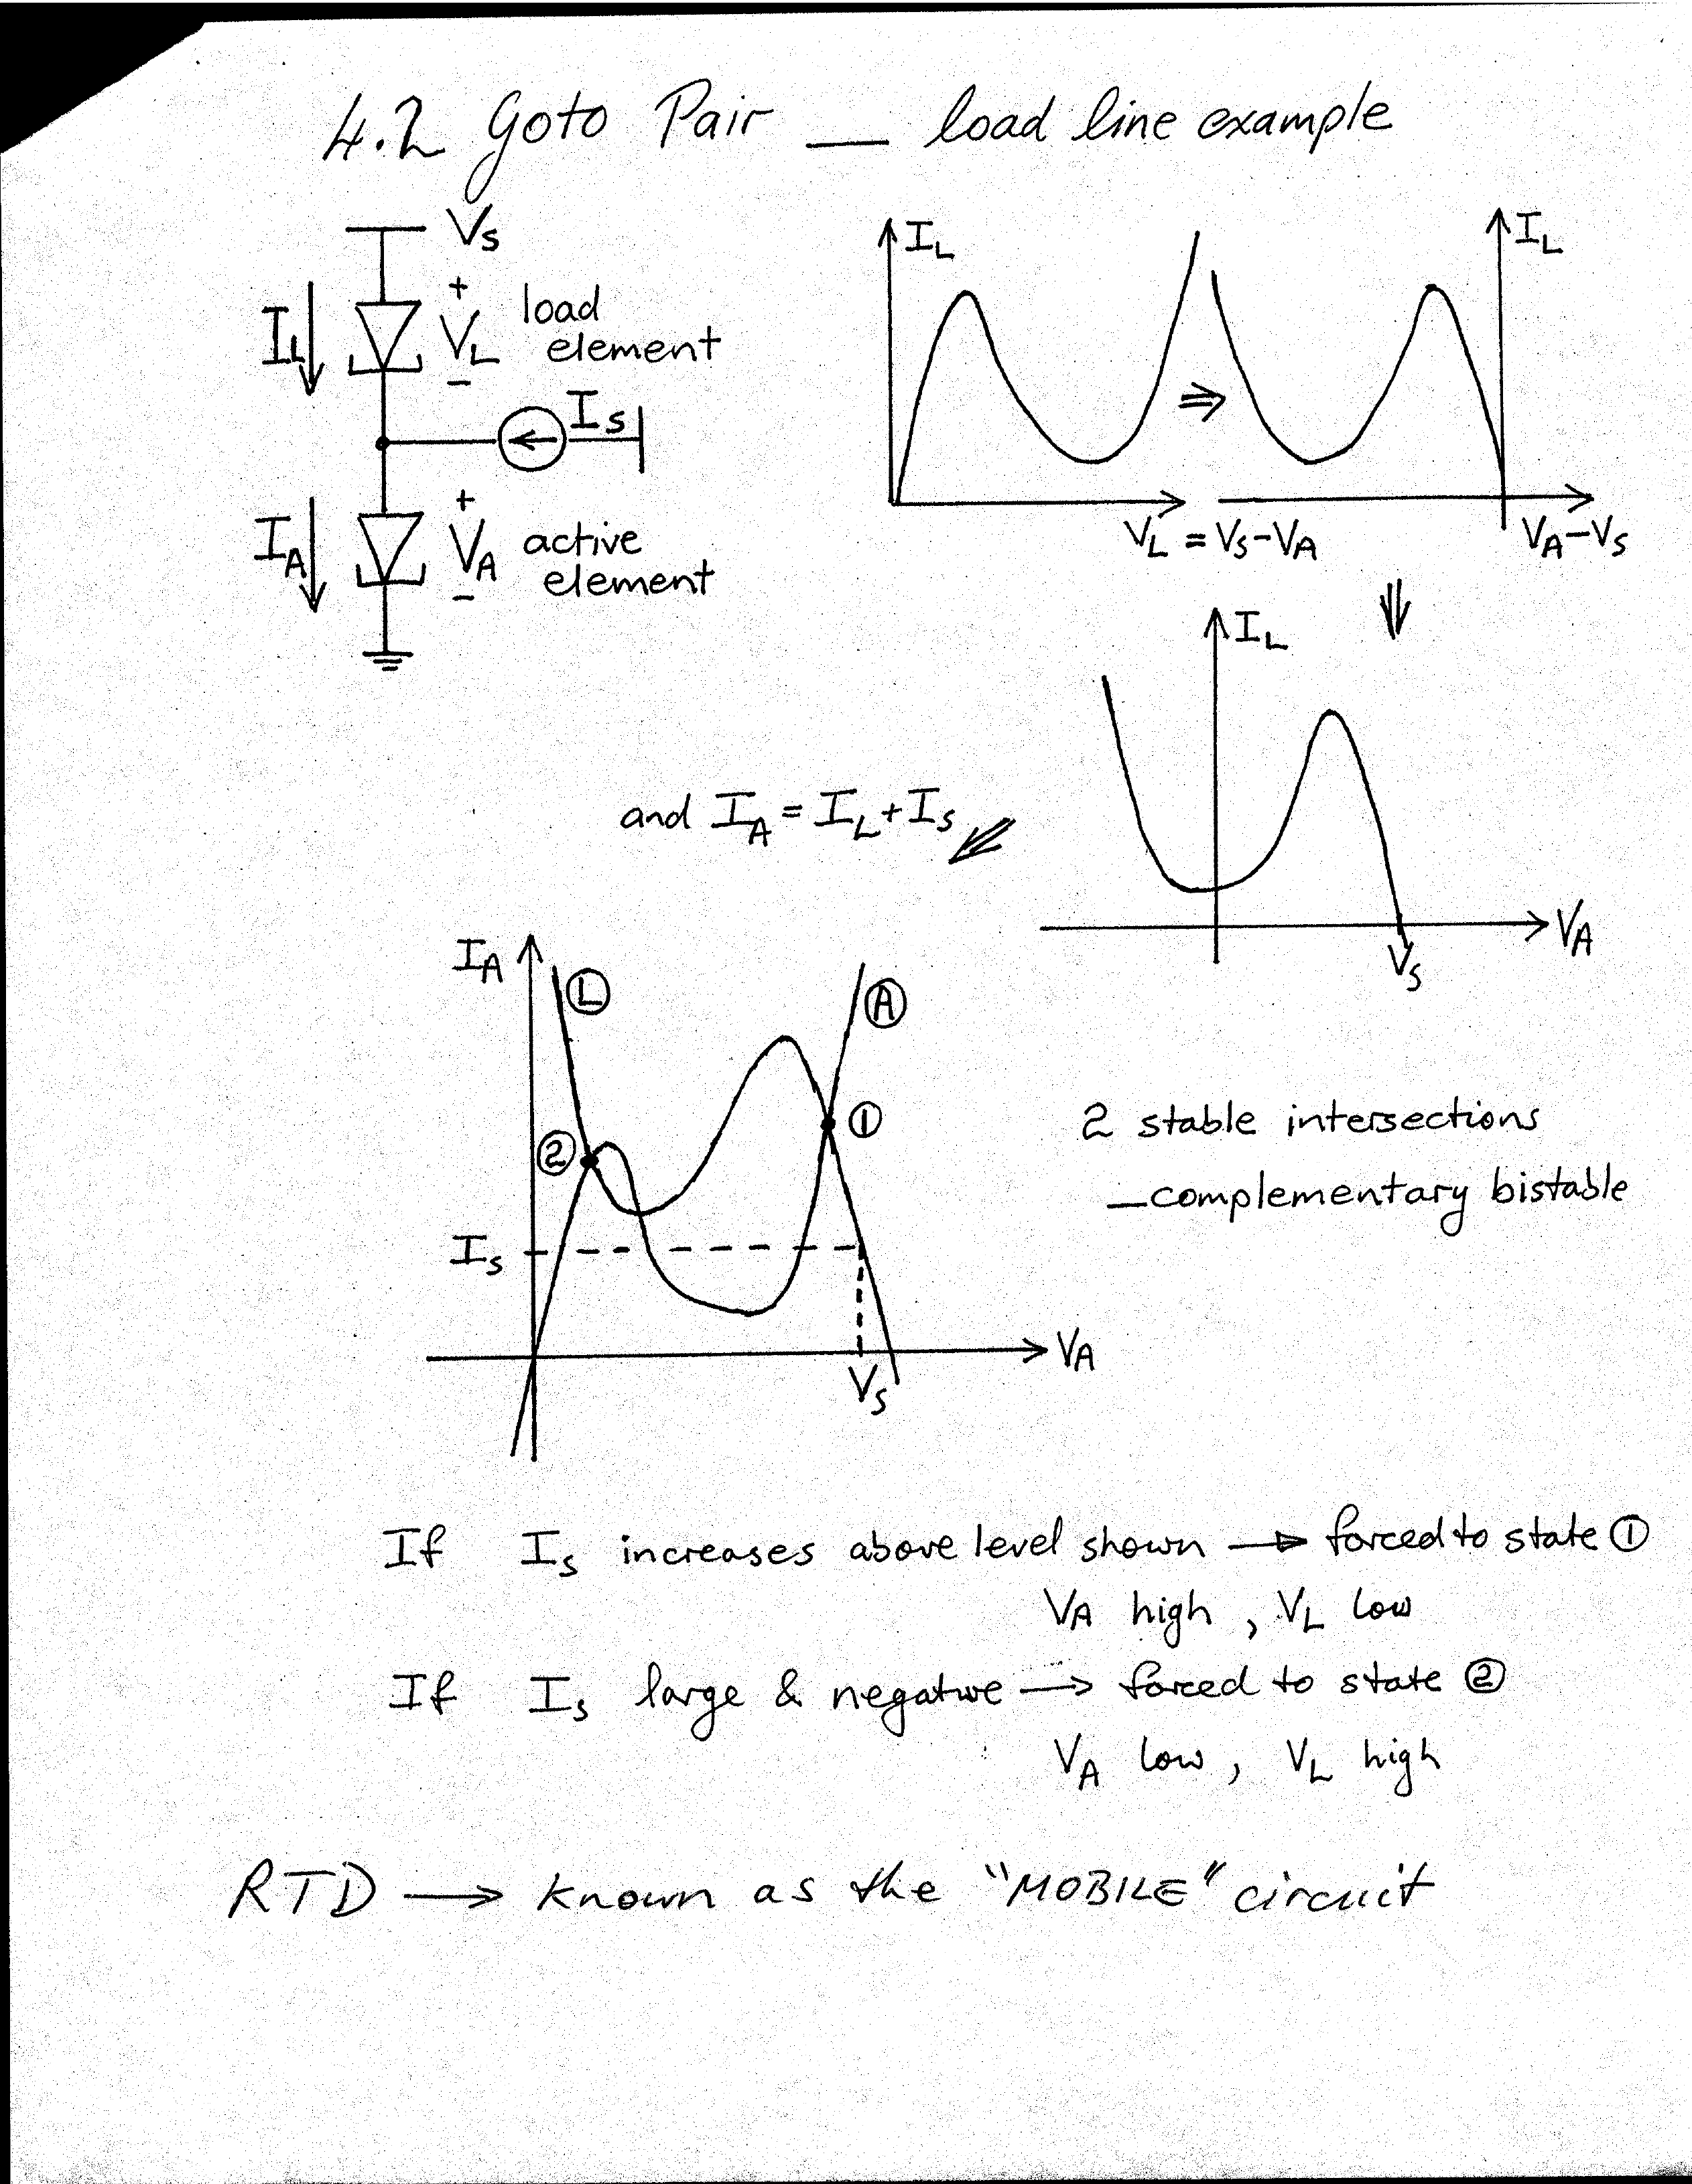 4.2 Goto Pair — load line example
V_S
I_L
+
V_L
-
load
element
I_S
I_A
+
V_A
-
active
element
I_L
I_L
⇒
V_L = V_S-V_A
V_A-V_S
⇓
I_L
V_A
V_S
and I_A = I_L + I_S
I_A
Ⓛ
Ⓐ
①
②
I_S
V_A
V_S
2 stable intersections
— complementary bistable
If I_S increases above level shown → forced to state ①
V_A high , V_L low
If I_S large & negative → forced to state ②
V_A low , V_L high
RTD → known as the "MOBILE" circuit